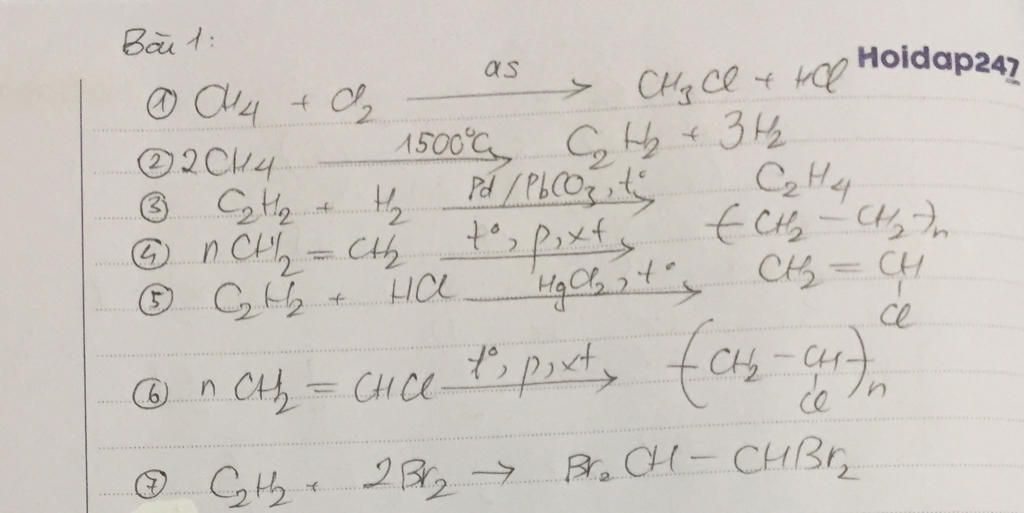 Bài 1:
Hoidap247
① CH₄ + Cl₂ —as→ CH₃Cl + HCl
② 2CH₄ —1500°C→ C₂H₂ + 3H₂
③ C₂H₂ + H₂ —Pd/PbCO₃, t°→ C₂H₄
④ nCH₂ = CH₂ —t°, p, xt→ (CH₂ – CH₂)n
⑤ C₂H₂ + HCl —HgCl₂, t°→ CH₂ = CH
Cl
⑥ nCH₂ = CHCl —t°, p, xt→ (CH₂ – CH)n
Cl
⑦ C₂H₂ + 2Br₂ → Br₂CH – CHBr₂